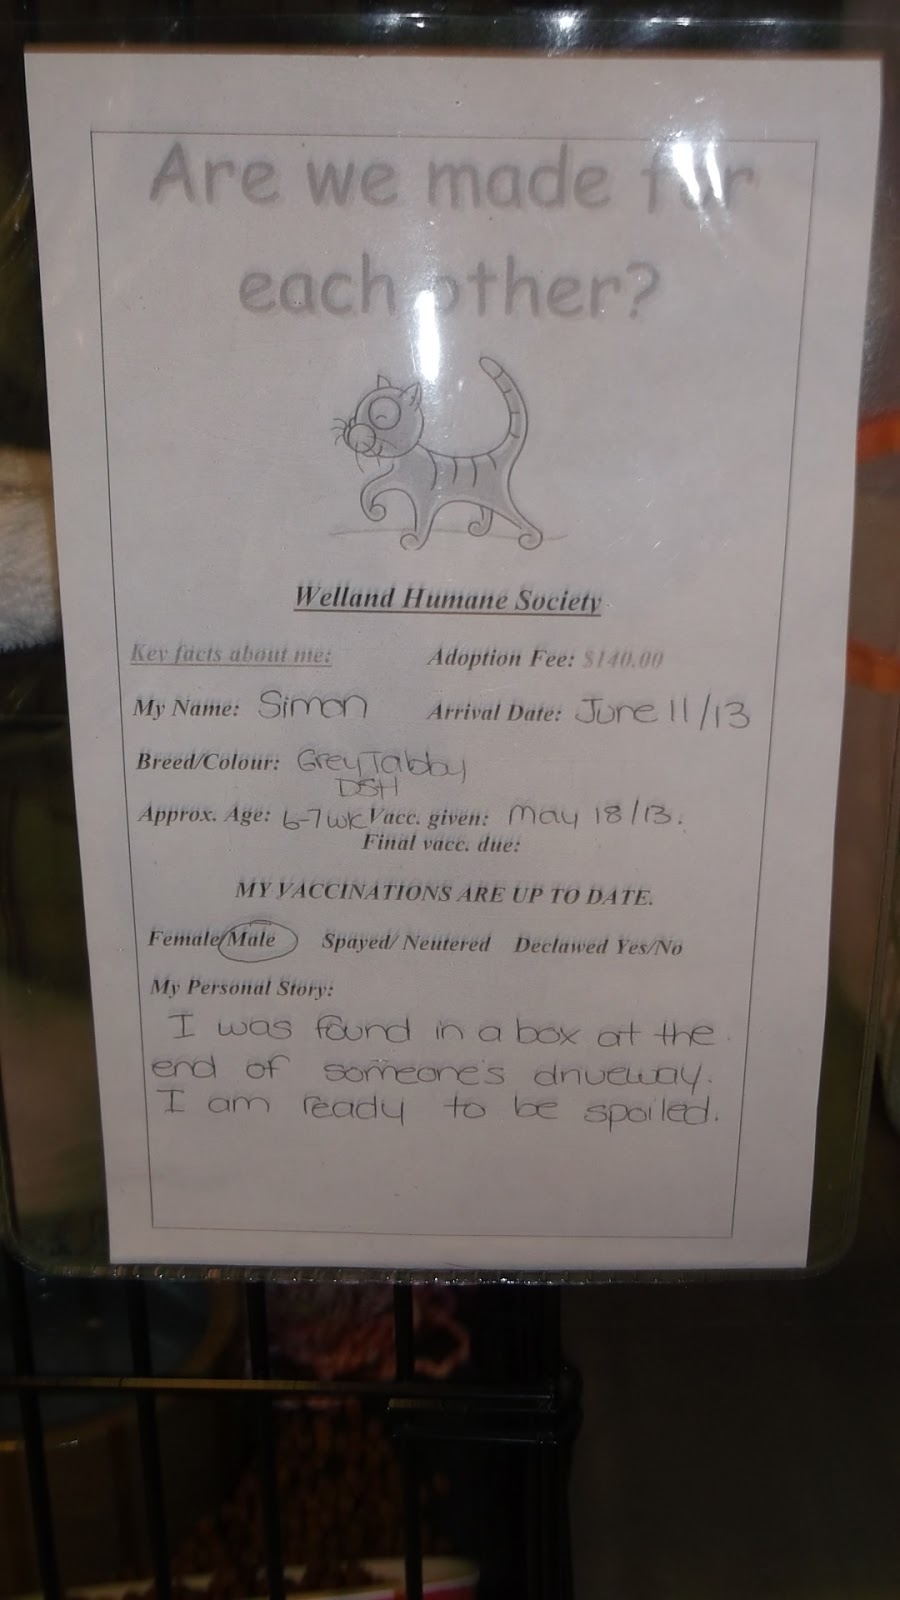 Are we made for
each other?
Welland Humane Society
Key facts about me: Adoption Fee: $140.00
My Name: Simon Arrival Date: June 11/13
Breed/Colour: Grey Tabby
DSH
Approx. Age: 6-7wk Vacc. given: May 18/13.
Final vacc. due:
MY VACCINATIONS ARE UP TO DATE.
Female/Male Spayed/ Neutered Declawed Yes/No
My Personal Story:
I was found in a box at the
end of someone's driveway.
I am ready to be spoiled.